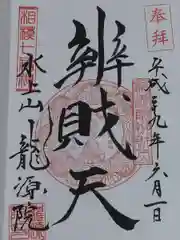 奉拝
平成二九年六月一日
辨財天
相模七福神
水上山龍源院